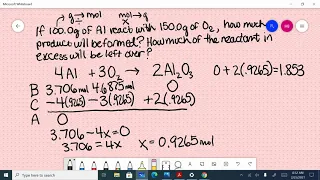 Microsoft Whiteboard
g → mol mol → g
If 100.0g of Al react with 150.0g of O₂, how much
product will be formed? How much of the reactant in
excess will be left over?
4Al + 3O₂ → 2Al₂O₃ 0 + 2(.9265) = 1.853
B 3.706mol 4.6875mol 0
C -4(.9265) -3(.9265) +2(.9265)
A 0
3.706-4x=0
3.706=4x x=0.9265mol